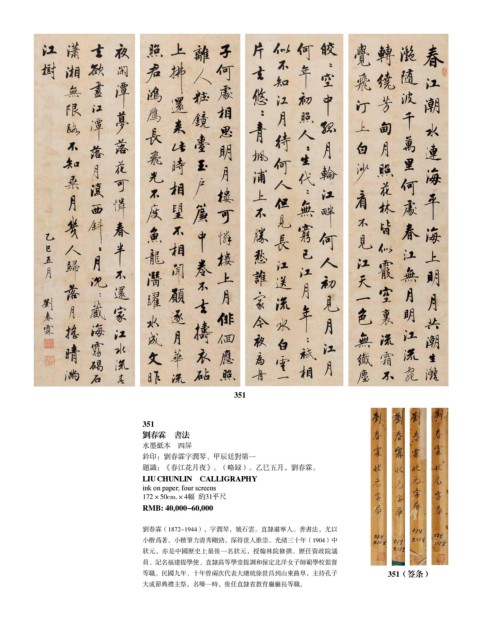 春江潮水連海平海上明月共潮生灔
灔隨波千萬里何處春江無月明江流宛
轉繞芳甸月照花林皆似霰空裏流霜不
覺飛汀上白沙看不見江天一色無纖塵
皎〻空中孤月輪江畔何人初見月江月
何年初照人〻生代〻無窮已江月年〻祇相
似不知江月待何人但見長江送流水白雲一
片去悠〻青楓浦上不勝愁誰家今夜扁舟
子何處相思明月樓可憐樓上月徘徊應照
離人粧鏡臺玉戶簾中卷不去擣衣砧
上拂還來此時相望不相聞願逐月華流
照君鴻鴈長飛光不度魚龍潛躍水成文昨
夜閒潭夢落花可憐春半不還家江水流春
去欲盡江潭落月復西斜〻月沈〻藏海霧碣石
瀟湘無限路不知乘月幾人歸落月搖晴滿
江樹
乙巳五月 劉春霖
351
351
劉春霖 書法
水墨紙本 四屏
鈐印：劉春霖字潤琴、甲辰廷對第一
題識：《春江花月夜》。（略録）。乙巳五月，劉春霖。
LIU CHUNLIN CALLIGRAPHY
ink on paper; four screens
172 × 50cm. ×4幅 約31平尺
RMB: 40,000-60,000
劉春霖（1872-1944），字潤琴，號石雲，直隸肅寧人，善書法，尤以
小楷爲著，小楷筆力清秀剛勁，深得世人推崇。光緒三十年（1904）中
狀元，亦是中國歷史上最後一名狀元，授翰林院修撰。歷任資政院議
員、記名福建提學使、直隸高等學堂提調和保定北洋女子師範學校監督
等職。民國九年、十年曾兩次代表大總統徐世昌到山東曲阜，主持孔子
大成節典禮主祭，名噪一時，後任直隸省教育廳廳長等職。
351（签条）